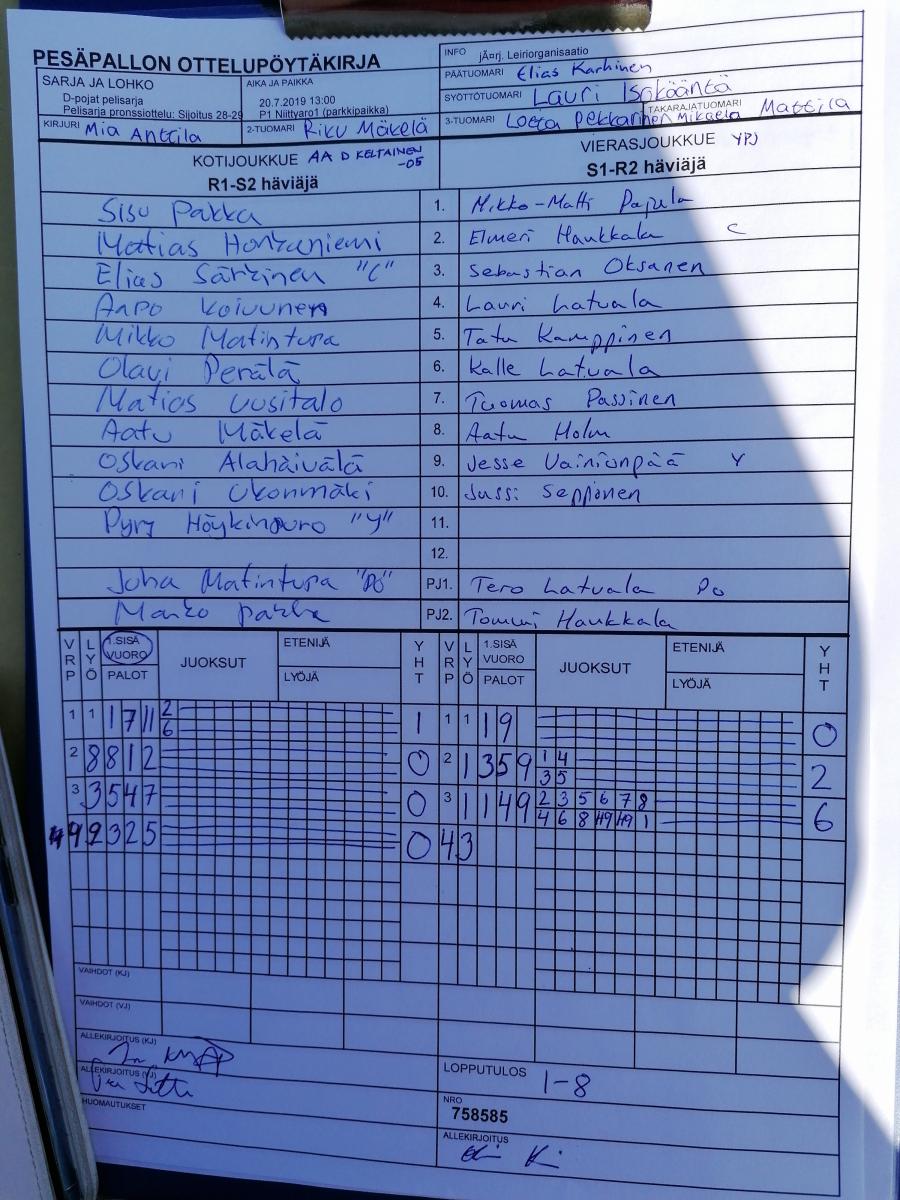 PESÄPALLON OTTELUPÖYTÄKIRJA
INFO jÃ¤rj. Leiriorganisaatio
PÄÄTUOMARI Elias Karhinen
SYÖTTÖTUOMARI Lauri Isokääntä
3-TUOMARI Loeta Pekkarinen TAKARAJATUOMARI Mikaela Mattila
SARJA JA LOHKO
D-pojat pelisarja
Pelisarja pronssiottelu: Sijoitus 28-29
AIKA JA PAIKKA
20.7.2019 13:00
P1 Niittyaro1 (parkkipaikka)
KIRJURI Mia Anttila
2-TUOMARI Riku Mäkelä
KOTIJOUKKUE AA D KELTAINEN -05
R1-S2 häviäjä
VIERASJOUKKUE YPJ
S1-R2 häviäjä
Sisu Pakka 1. Mikko-Matti Pajula
Matias Honkaniemi 2. Elmeri Haukkala C
Elias Särkinen "C" 3. Sebastian Oksanen
Arpo Koivunen 4. Lauri Latvala
Mikko Matintupa 5. Tatu Kamppinen
Olavi Perälä 6. Kalle Latvala
Matias Uusitalo 7. Tuomas Passinen
Aatu Mäkelä 8. Aatu Holm
Oskari Alahäivälä 9. Jesse Vainionpää Y
Oskari Ukonmäki 10. Jussi Sepponen
Pyry Höykinpuro "Y" 11.
12.
Juha Matintupa "PO" PJ1. Tero Latvala Po
Marko Pakka PJ2. Tommi Haukkala
VRP LYÖ 1.SISÄ VUORO PALOT JUOKSUT ETENIJÄ LYÖJÄ YHT VRP LYÖ 1.SISÄ VUORO PALOT JUOKSUT ETENIJÄ LYÖJÄ YHT
1 1 1 7 11 2 1 1 1 1 9 0
6
2 8 8 1 2 0 2 1 3 5 9 1 4 2
3 5
3 3 5 4 7 0 3 1 1 4 9 2 3 5 6 7 8 6
4 6 8 49 49 1
4 9 2 3 2 5 0 4 3
VAIHDOT (KJ)
VAIHDOT (VJ)
ALLEKIRJOITUS (KJ)
ALLEKIRJOITUS (VJ)
HUOMAUTUKSET
LOPPUTULOS 1-8
NRO
758585
ALLEKIRJOITUS